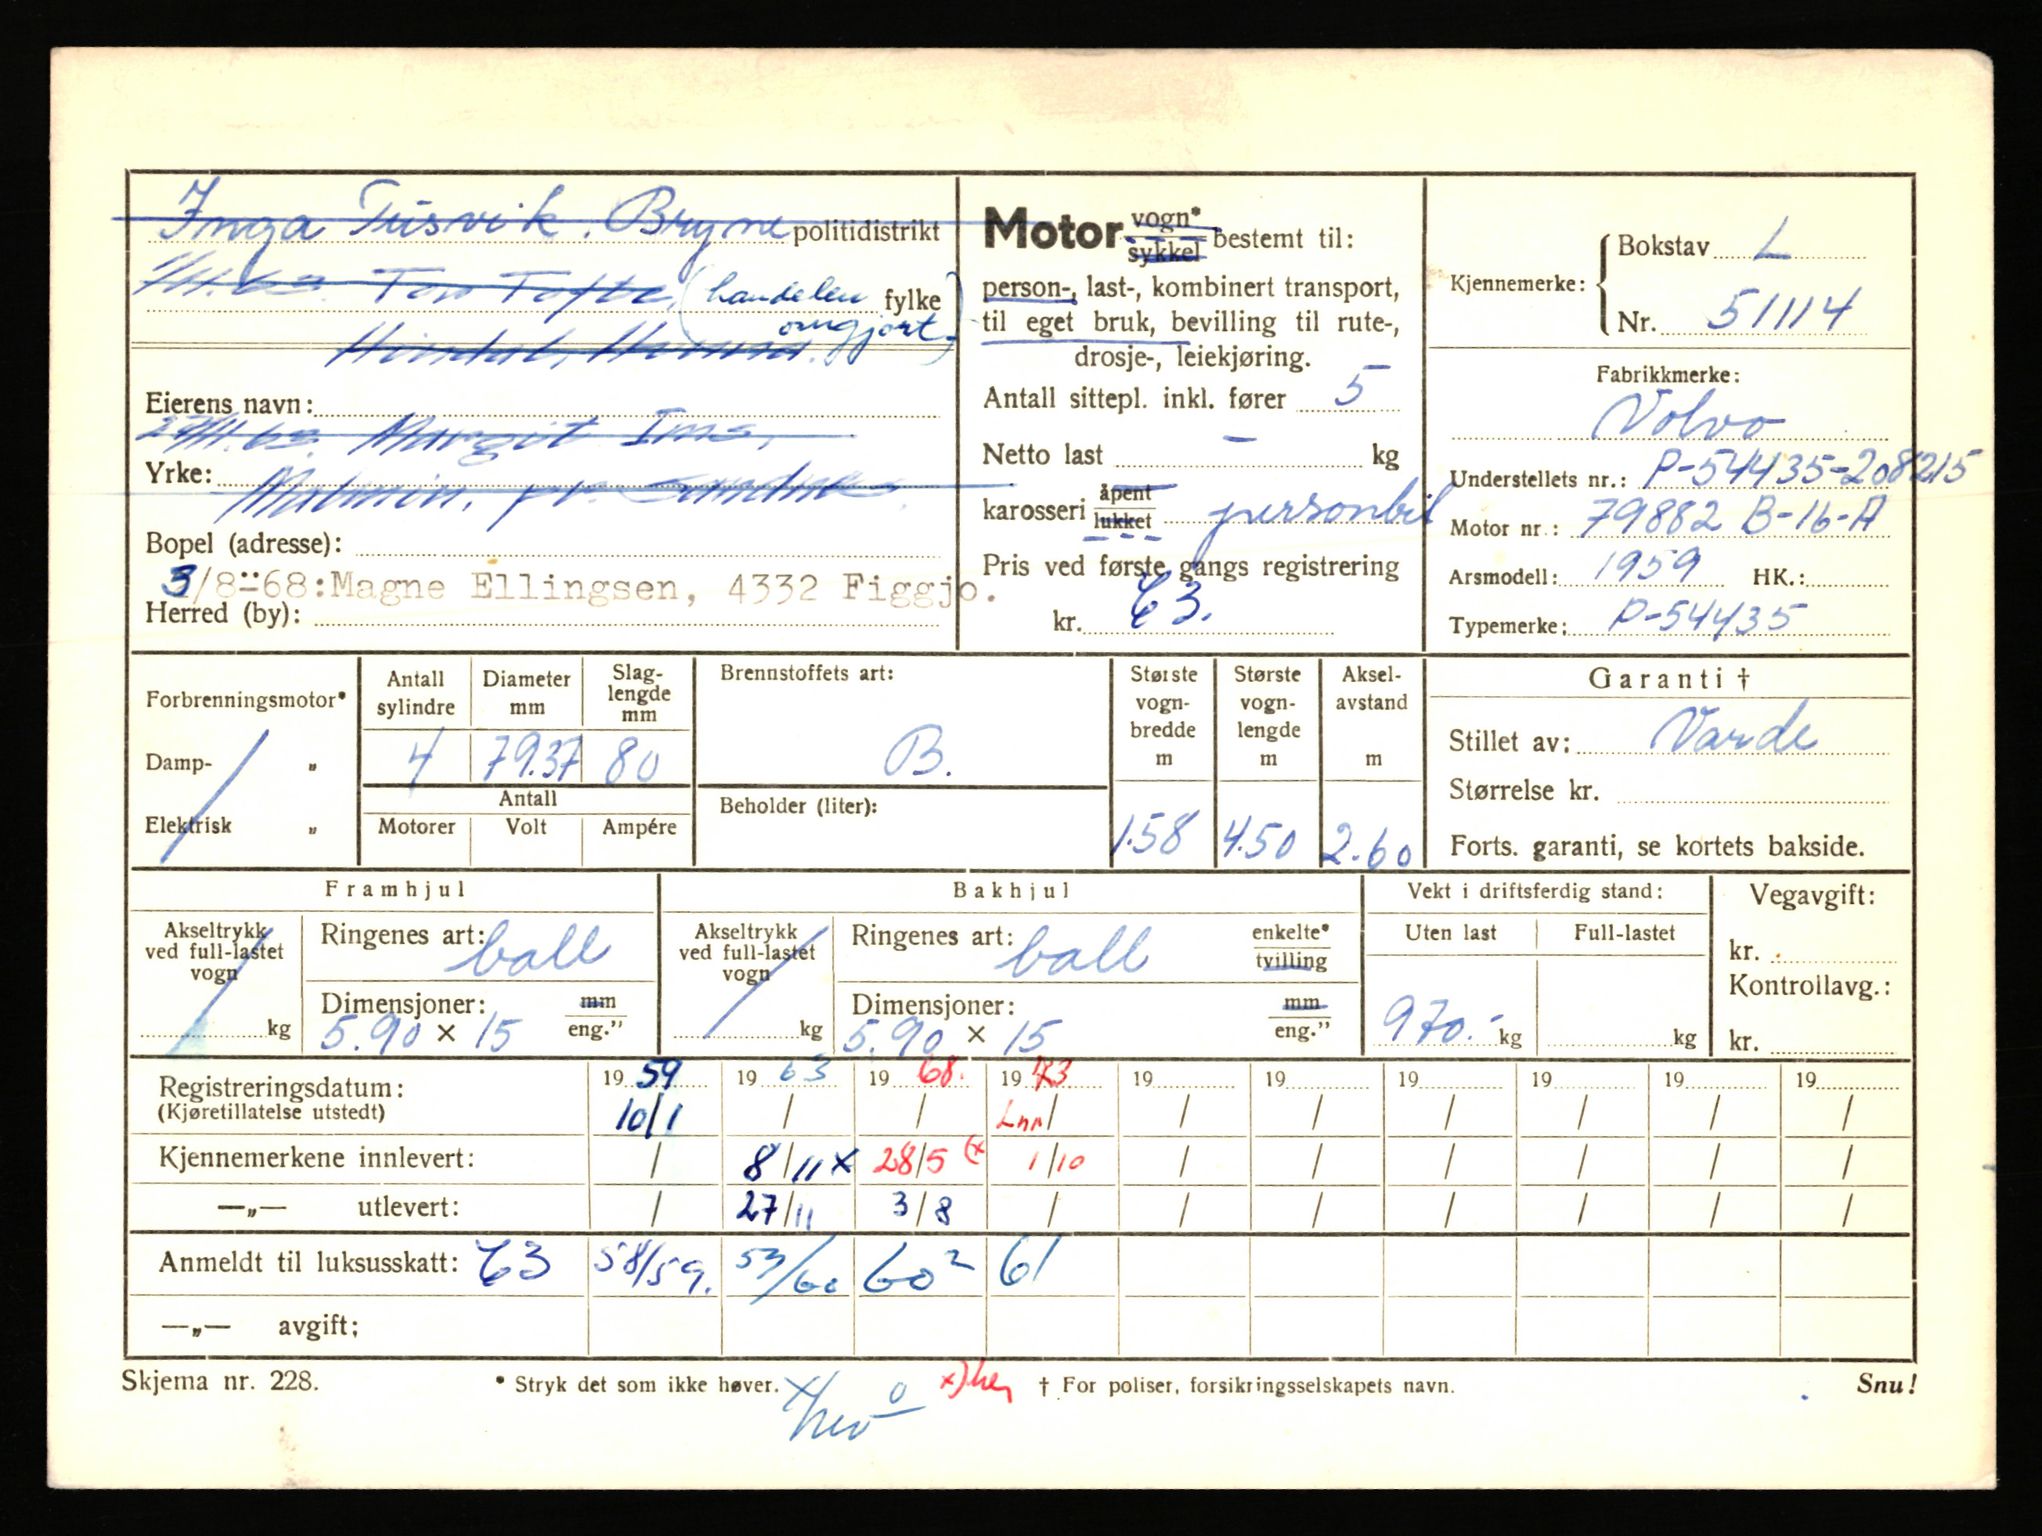 Inga Tusvik. Bryne politidistrikt
1/11.63. Tor Tofte, (handelen fylke
omgjort)
Eierens navn:
27/11.63. Margit Ims,
Yrke: Malmin, pr. Sandnes.
Bopel (adresse):
3/8-68: Magne Ellingsen, 4332 Figgjo.
Herred (by):
Motor vogn* sykkel bestemt til:
person-, last-, kombinert transport,
til eget bruk, bevilling til rute-,
drosje-, leiekjøring.
Antall sittepl. inkl. fører 5
Netto last – kg
karosseri åpent lukket personbil
Pris ved første gangs registrering
kr. C3.
Kjennemerke: { Bokstav L
Nr. 51114
Fabrikkmerke:
Volvo
Understellets nr.: P-54435-208215
Motor nr.: 79882 B-16-A
Arsmodell: 1959 HK.:
Typemerke: P-54435
Forbrenningsmotor*
Damp- „
Elektrisk „
Antall sylindre 4
Diameter mm 79.37
Slag-lengde mm 80
Antall
Motorer Volt Ampére
Brennstoffets art:
B.
Beholder (liter):
Største vogn-bredde m 1.58
Største vogn-lengde m 4.50
Aksel-avstand m 2.60
Garanti †
Stillet av: Varde
Størrelse kr.
Forts. garanti, se kortets bakside.
Framhjul
Akseltrykk ved full-lastet vogn kg
Ringenes art: ball
Dimensjoner: mm eng."
5.90 × 15
Bakhjul
Akseltrykk ved full-lastet vogn kg
Ringenes art: ball enkelte* tvilling
Dimensjoner: mm eng."
5.90 × 15
Vekt i driftsferdig stand:
Uten last Full-lastet
970.- kg kg
Vegavgift:
kr.
Kontrollavg.:
kr.
19 59 19 63 19 68. 19 73 19 19 19 19 19 19
Registreringsdatum: 10/1 / / Lnr/ / / / / / /
(Kjøretillatelse utstedt)
Kjennemerkene innlevert: / 8/11 x 28/5 (x 1/10 / / / / / /
—„— utlevert: / 27/11 3/8 / / / / / / /
Anmeldt til luksusskatt: C3 58/59. 59/60 60² 61
—„— avgift;
Skjema nr. 228. * Stryk det som ikke høver. x) her † For poliser, forsikringsselskapets navn. Snu!